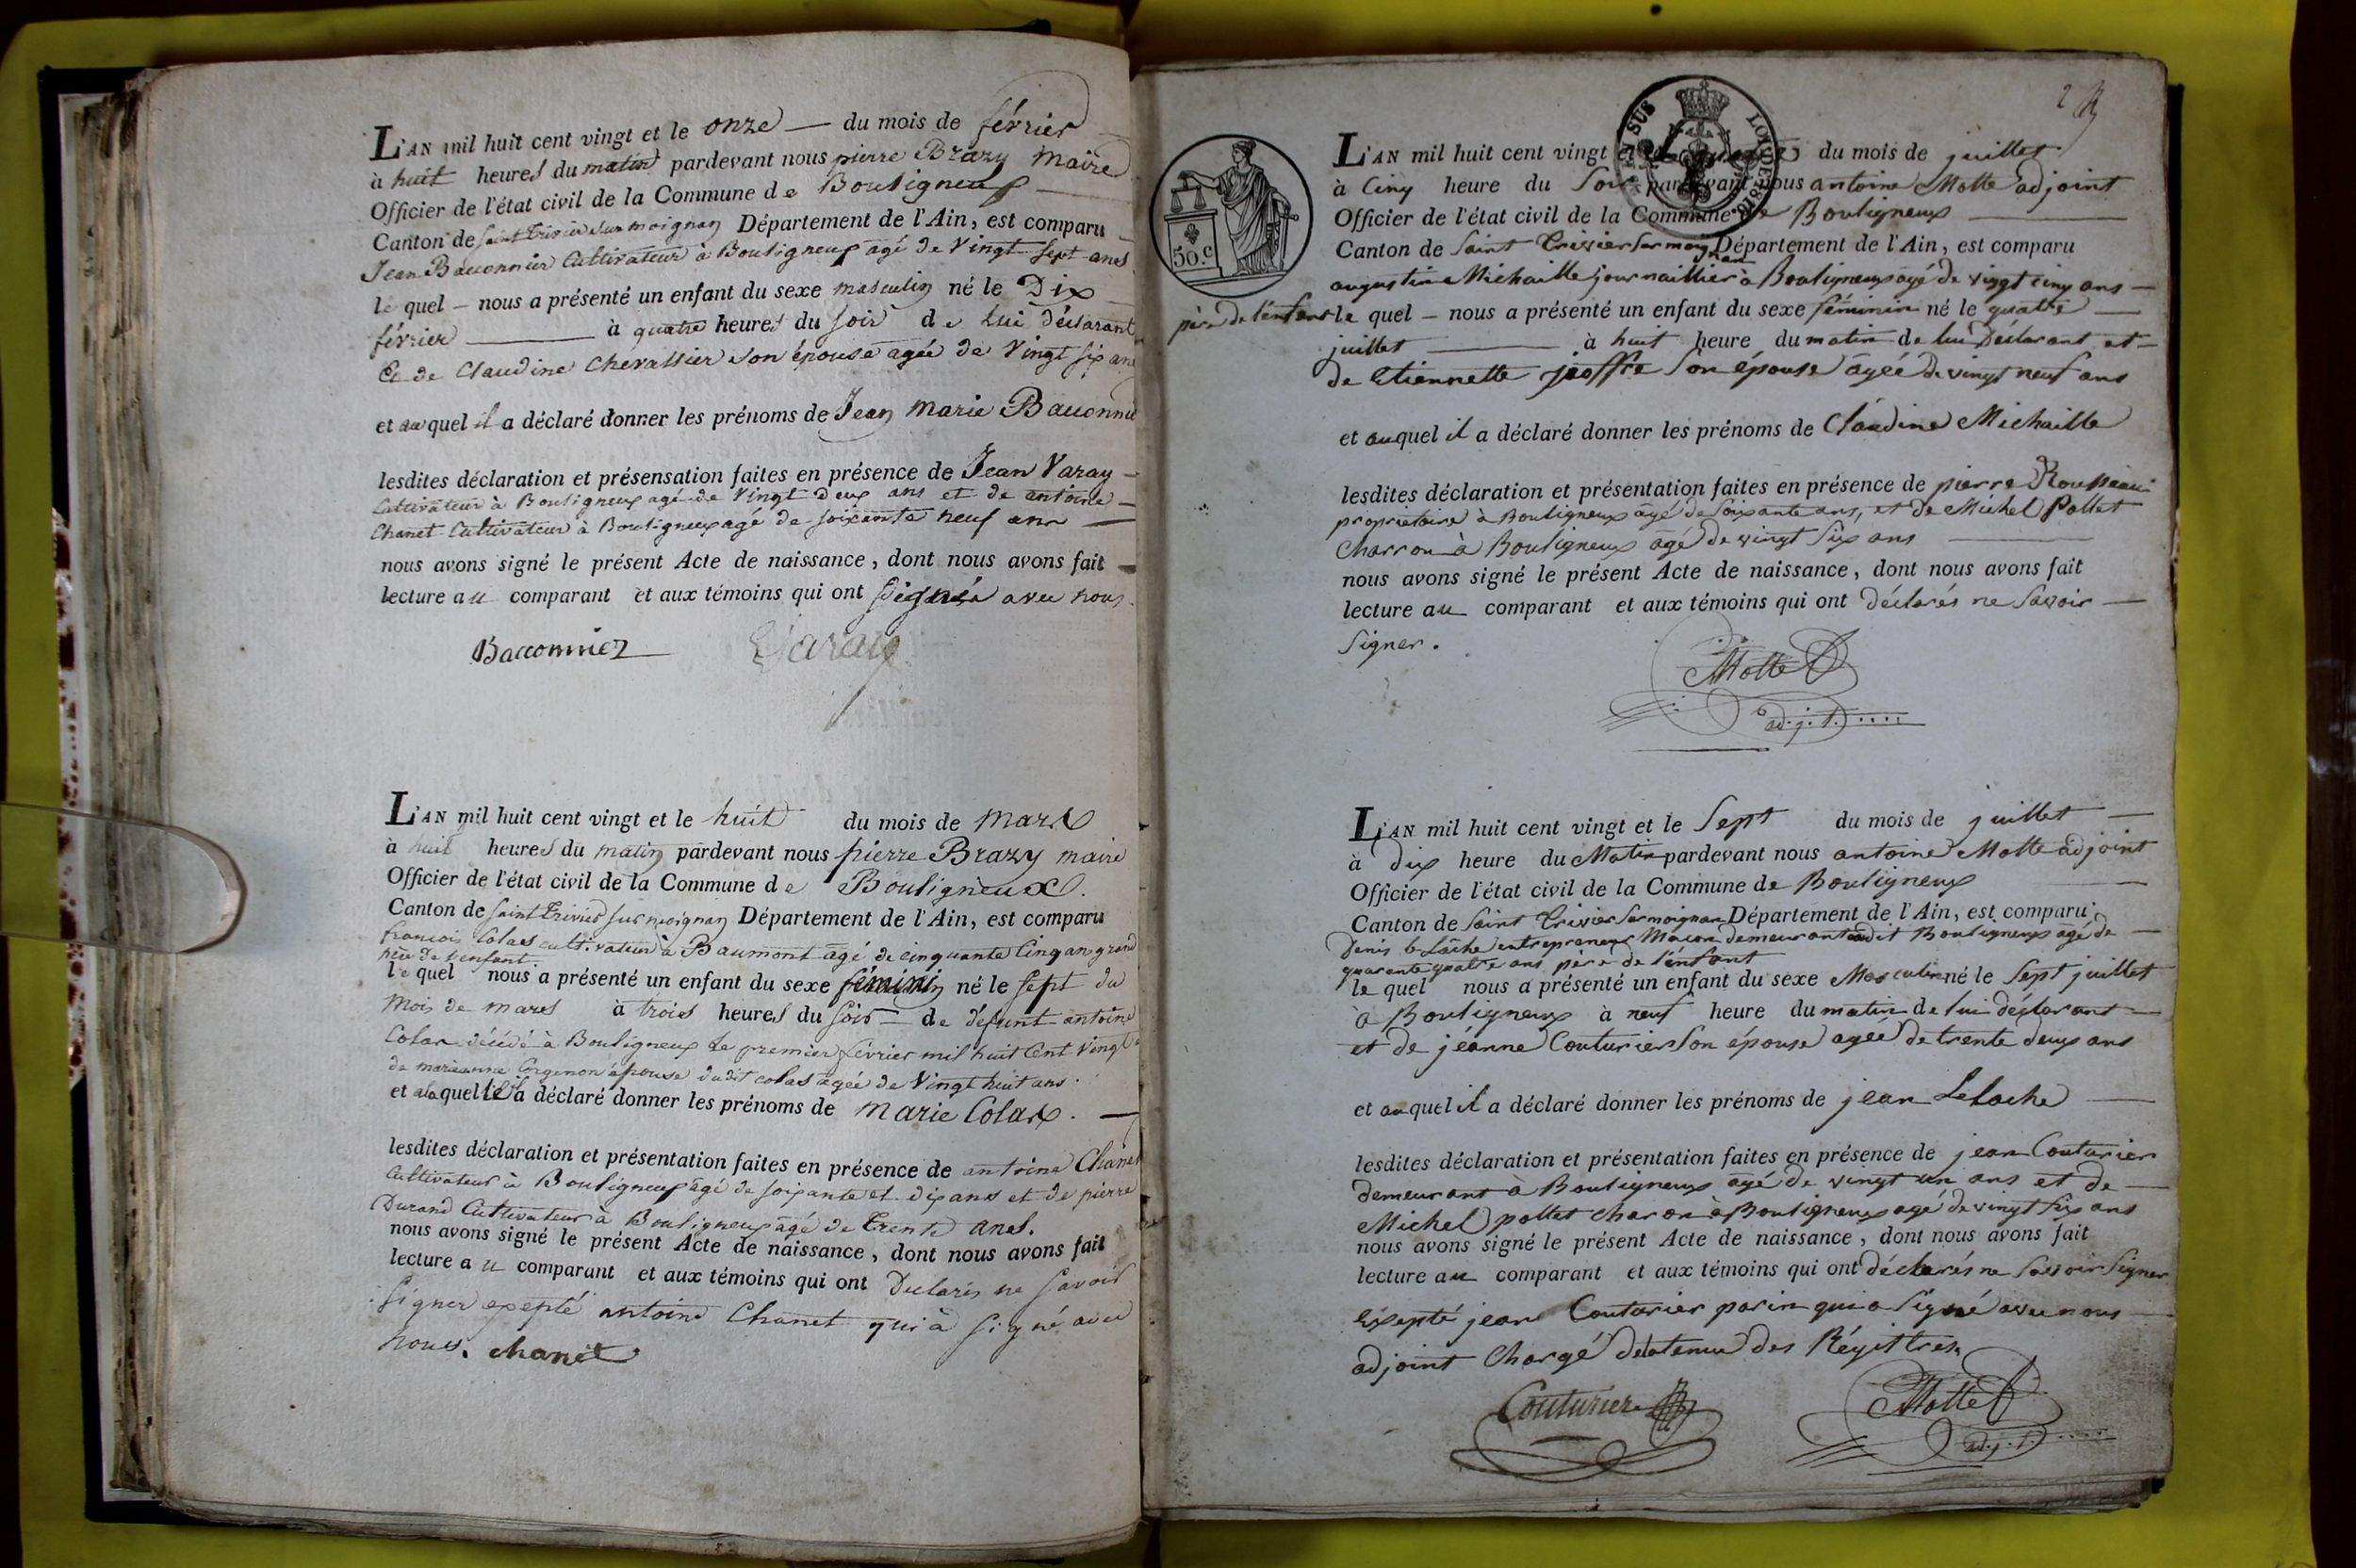 L'AN mil huit cent vingt et le onze — du mois de février
à huit heures du matin pardevant nous pierre Brazy Maire
Officier de l'état civil de la Commune de Bouligneux
Canton de saint trivier sur moignan Département de l'Ain, est comparu
Jean Baconnier Cultivateur à Bouligneux agé de Vingt sept ans
le quel — nous a présenté un enfant du sexe masculin né le Dix
février — à quatre heures du soir de Lui déclarant
Et de Claudine Chevallier son épouse agée de Vingt six ans
et auquel il a déclaré donner les prénoms de Jean marie Baconnier
lesdites déclaration et présensation faites en présence de Jean Varay
Cultivateur à Bouligneux agé de Vingt deux ans et de antoine
Chanet Cultivateur à Bouligneux agé de soixante neuf ans
nous avons signé le présent Acte de naissance, dont nous avons fait
lecture au comparant et aux témoins qui ont signé avec nous.
Bacconnier Varay
L'AN mil huit cent vingt et le huit du mois de mars
à huit heures du matin pardevant nous pierre Brazy maire
Officier de l'état civil de la Commune de Bouligneux.
Canton de saint trivier sur moignan Département de l'Ain, est comparu
françois Colas cultivateur à Baumont agé de cinquante cinq an grand
père de l'enfant
le quel nous a présenté un enfant du sexe féminin né le sept du
mois de mars à trois heures du soir — de défunt antoine
Colas décédé à Bouligneux le premier février mil huit Cent Vingt
de marianne épouse dudit colas agée de Vingt huit ans.
et alaquelle il a déclaré donner les prénoms de marie Colas.
lesdites déclaration et présentation faites en présence de antoine Chanet
Cultivateur à Bouligneux agé de soixante et dix ans et de pierre
Durand Cultivateur à Bouligneux agé de trente ans.
nous avons signé le présent Acte de naissance, dont nous avons fait
lecture au comparant et aux témoins qui ont Declarés ne savoir
signer exepté antoine Chanet qui à signé avec
nous. chanet
2
SUS LOI DE 1816
50.c
L'AN mil huit cent vingt et du mois de juillet
à Cinq heure du Soir pardevant nous antoine Motte adjoint
Officier de l'état civil de la Commune de Bouligneux
Canton de Saint Trivier sur moignan Département de l'Ain, est comparu
augustin Michaille journaillier à Bouligneux agé de vingt cinq ans —
père de l'enfant le quel — nous a présenté un enfant du sexe féminin né le quatre
juillet — à huit heure du matin de lui Déclarant et —
de Etiennette joffre Son épouse agée de vingt neuf ans
et auquel il a déclaré donner les prénoms de Claudine Michaille
lesdites déclaration et présentation faites en présence de pierre Rousseau
proprietaire à Bouligneux agé de Soixante ans, et de Michel Pollet
Charron à Bouligneux agé de vingt Six ans
nous avons signé le présent Acte de naissance, dont nous avons fait
lecture au comparant et aux témoins qui ont déclarés ne Savoir
Signer.
Motte
adj.t
L'AN mil huit cent vingt et le Sept du mois de juillet
à dix heure du Matin pardevant nous antoine Motte adjoint
Officier de l'état civil de la Commune de Bouligneux
Canton de Saint Trivier Sur moignan Département de l'Ain, est comparu
Denis le lâche entrepreneur Maçon demeurant audit Bouligneux agé de
quarante quatre ans père de l'enfant
le quel nous a présenté un enfant du sexe Masculin né le Sept juillet
à Bouligneux à neuf heure du matin de lui déclarant
et de jéanne Couturier Son épouse agée de trente deux ans
et auquel il a déclaré donner les prénoms de jean Lelache
lesdites déclaration et présentation faites en présence de jean Couturier
demeurant à Bouligneux agé de vingt un ans et de
Michel pollet charon à Bouligneux agé de vingt Six ans
nous avons signé le présent Acte de naissance, dont nous avons fait
lecture au comparant et aux témoins qui ont déclarés ne Savoir Signer
Exepté jean Couturier parin qui a Signé avec nous
adjoint Chargé de la tenue des Régitres.
Couturier Motte
adj.t